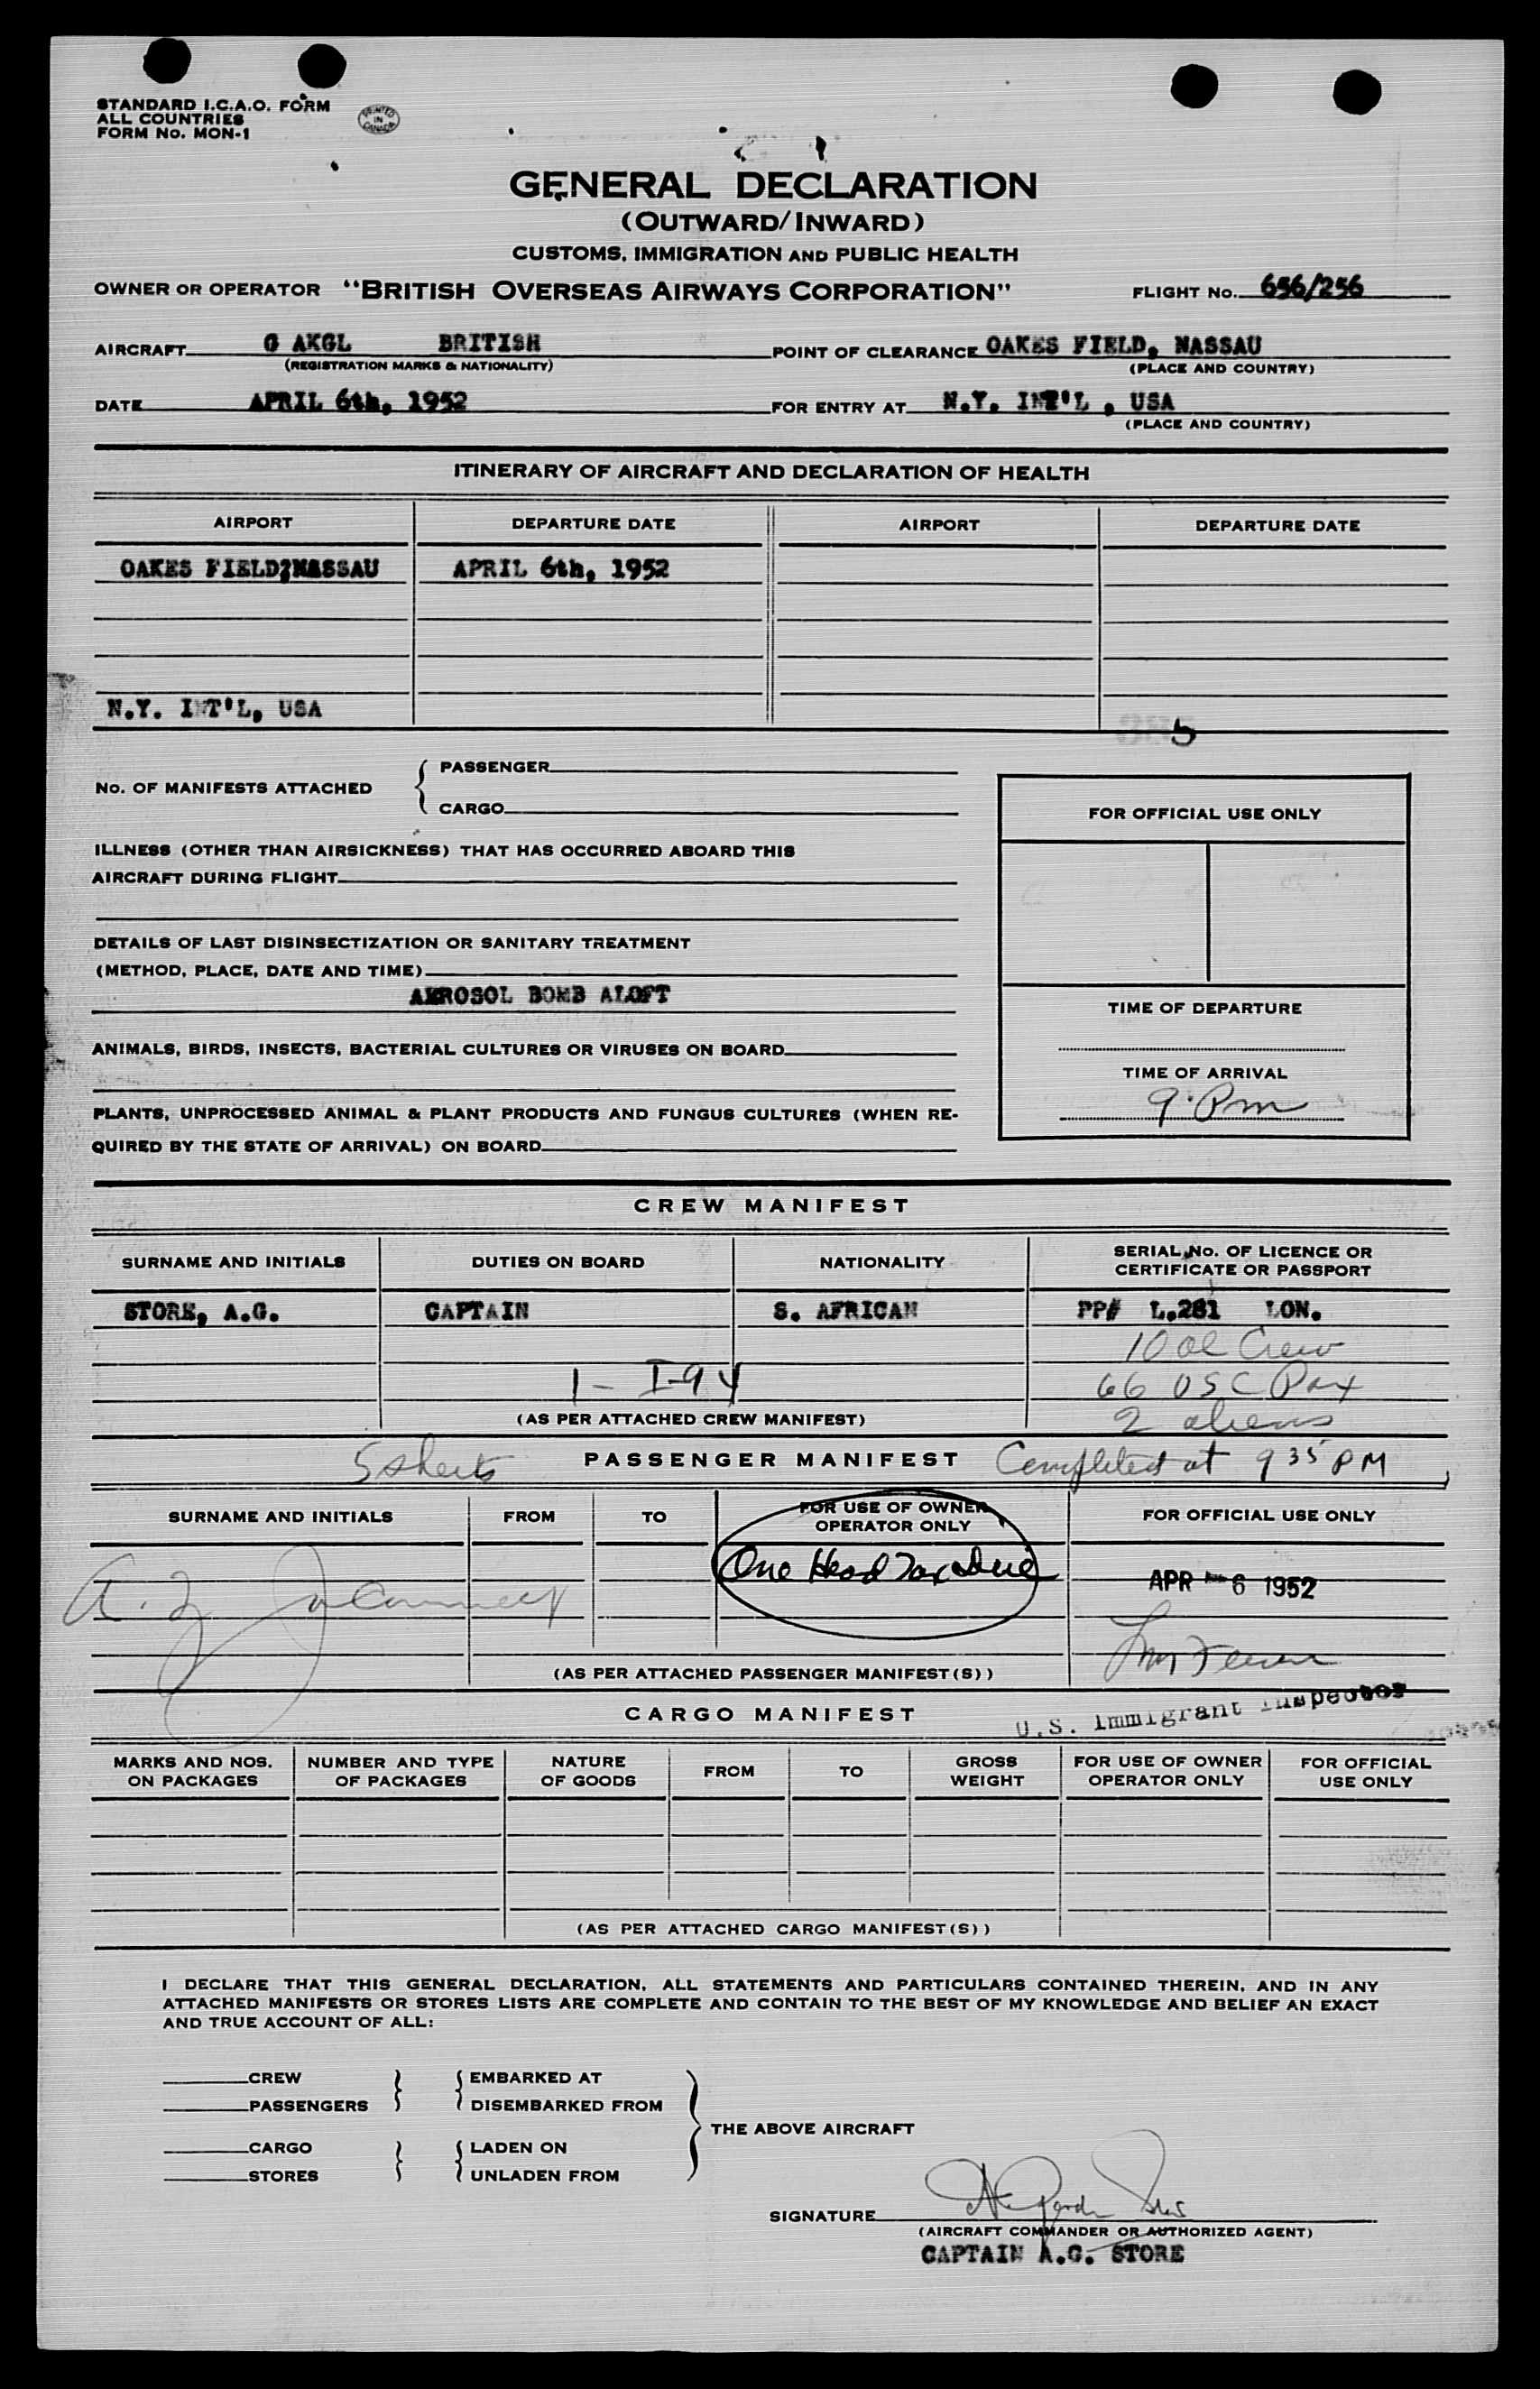 STANDARD I.C.A.O. FORM
ALL COUNTRIES
FORM No. MON-1
PRINTED IN CANADA
GENERAL DECLARATION
(OUTWARD/INWARD)
CUSTOMS, IMMIGRATION AND PUBLIC HEALTH
OWNER OR OPERATOR "BRITISH OVERSEAS AIRWAYS CORPORATION" FLIGHT No. 656/256
AIRCRAFT G AKGL BRITISH POINT OF CLEARANCE OAKES FIELD, NASSAU
(REGISTRATION MARKS & NATIONALITY) (PLACE AND COUNTRY)
DATE APRIL 6th, 1952 FOR ENTRY AT N.Y. INT'L , USA
(PLACE AND COUNTRY)
ITINERARY OF AIRCRAFT AND DECLARATION OF HEALTH
AIRPORT DEPARTURE DATE AIRPORT DEPARTURE DATE
OAKES FIELD?NASSAU APRIL 6th, 1952
N.Y. INT'L, USA
5
No. OF MANIFESTS ATTACHED { PASSENGER
CARGO
FOR OFFICIAL USE ONLY
ILLNESS (OTHER THAN AIRSICKNESS) THAT HAS OCCURRED ABOARD THIS
AIRCRAFT DURING FLIGHT
DETAILS OF LAST DISINSECTIZATION OR SANITARY TREATMENT
(METHOD, PLACE, DATE AND TIME)
AEROSOL BOMB ALOFT
TIME OF DEPARTURE
ANIMALS, BIRDS, INSECTS, BACTERIAL CULTURES OR VIRUSES ON BOARD
TIME OF ARRIVAL
9 Pm
PLANTS, UNPROCESSED ANIMAL & PLANT PRODUCTS AND FUNGUS CULTURES (WHEN RE-
QUIRED BY THE STATE OF ARRIVAL) ON BOARD
CREW MANIFEST
SURNAME AND INITIALS DUTIES ON BOARD NATIONALITY SERIAL No. OF LICENCE OR
CERTIFICATE OR PASSPORT
STORE, A.G. CAPTAIN S. AFRICAN PP# L.281 LON.
10 al Crew
1 - I-94 66 USC Pax
(AS PER ATTACHED CREW MANIFEST) 2 aliens
5 sheets PASSENGER MANIFEST Completed at 9 35 PM
SURNAME AND INITIALS FROM TO FOR USE OF OWNER
OPERATOR ONLY FOR OFFICIAL USE ONLY
One Head Tax Due
APR 6 1952
(AS PER ATTACHED PASSENGER MANIFEST(S))
CARGO MANIFEST
U.S. Immigrant Inspector
MARKS AND NOS.
ON PACKAGES NUMBER AND TYPE
OF PACKAGES NATURE
OF GOODS FROM TO GROSS
WEIGHT FOR USE OF OWNER
OPERATOR ONLY FOR OFFICIAL
USE ONLY
(AS PER ATTACHED CARGO MANIFEST(S))
I DECLARE THAT THIS GENERAL DECLARATION, ALL STATEMENTS AND PARTICULARS CONTAINED THEREIN, AND IN ANY
ATTACHED MANIFESTS OR STORES LISTS ARE COMPLETE AND CONTAIN TO THE BEST OF MY KNOWLEDGE AND BELIEF AN EXACT
AND TRUE ACCOUNT OF ALL:
CREW EMBARKED AT
PASSENGERS DISEMBARKED FROM
THE ABOVE AIRCRAFT
CARGO LADEN ON
STORES UNLADEN FROM
SIGNATURE
(AIRCRAFT COMMANDER OR AUTHORIZED AGENT)
CAPTAIN A.G. STORE